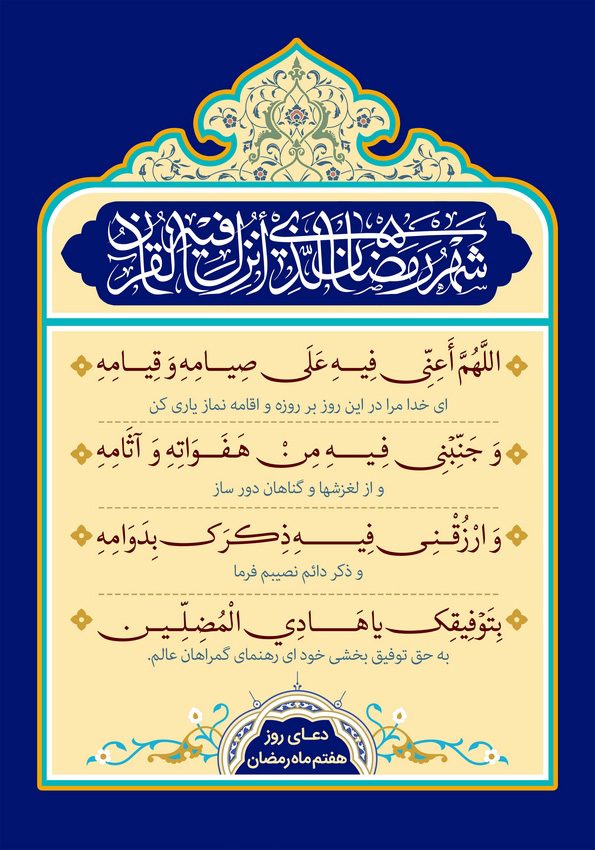 شَهْرُ رَمَضَانَ الَّذِي أُنْزِلَ فِيهِ الْقُرْآنُ
اللَّهُمَّ أَعِنِّی فِیهِ عَلَی صِیَامِهِ وَ قِیَامِهِ
ای خدا مرا در این روز بر روزه و اقامه نماز یاری کن
وَ جَنِّبْنِی فِیهِ مِنْ هَفَوَاتِهِ وَ آثَامِهِ
و از لغزشها و گناهان دور ساز
وَ ارْزُقْنِی فِیهِ ذِکْرَکَ بِدَوَامِهِ
و ذکر دائم نصیبم فرما
بِتَوْفِیقِکَ یا هَادِيَ الْمُضِلِّینَ
به حق توفیق بخشی خود ای رهنمای گمراهان عالم.
دعای روز
هفتم ماه رمضان